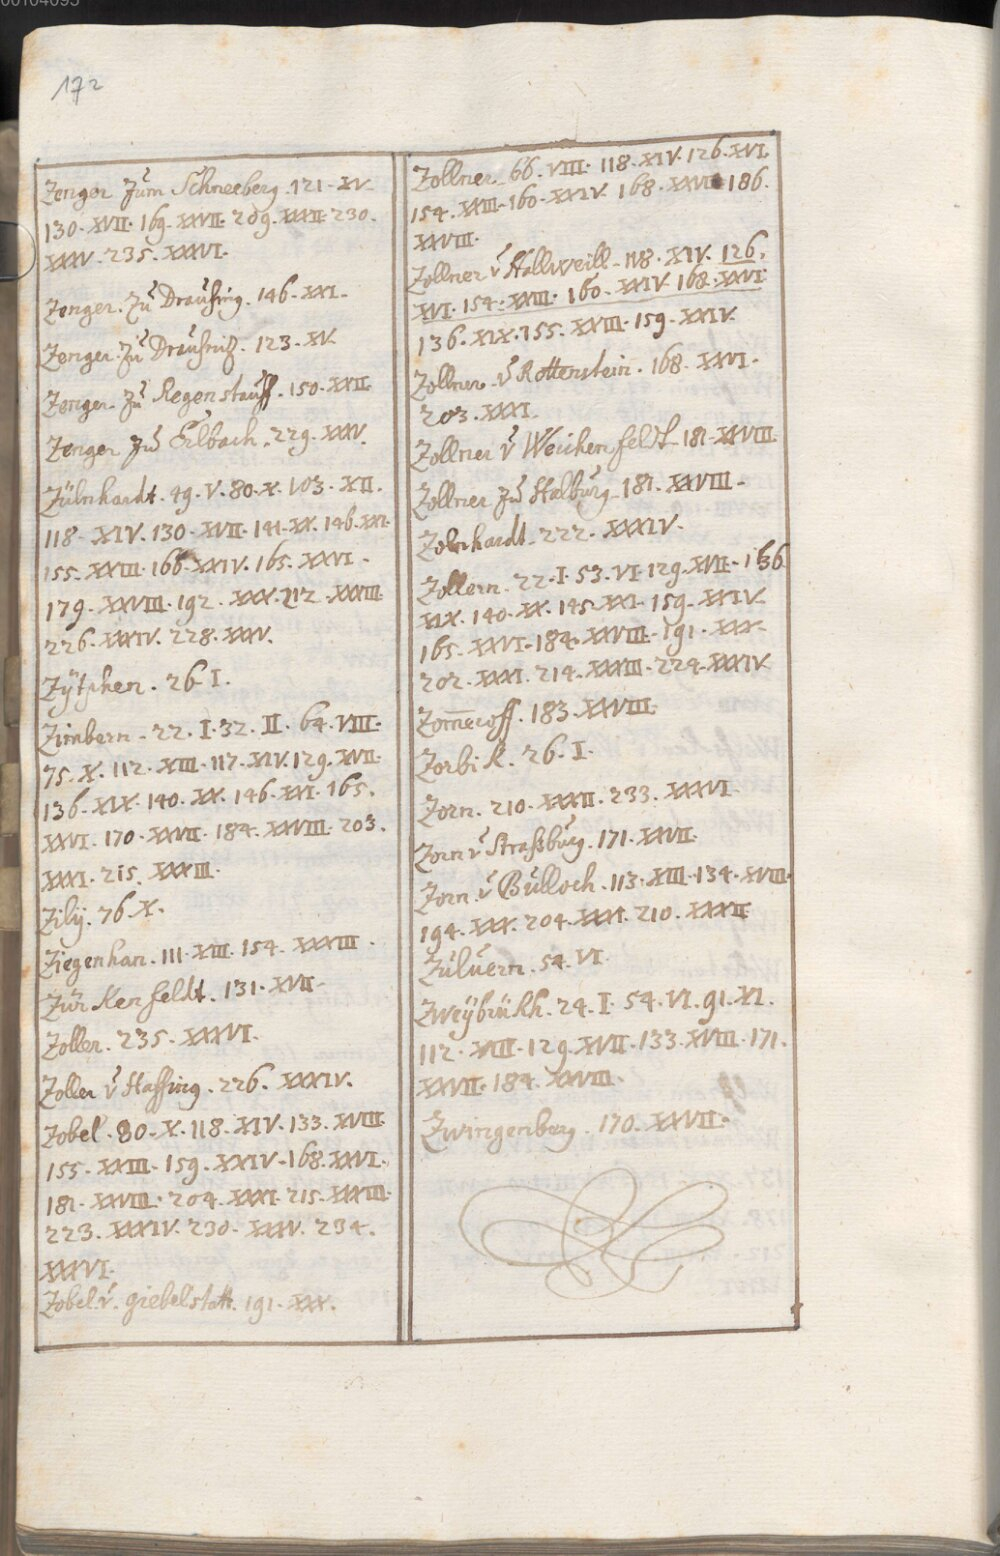 00104095
172
Zenger zum Schneeberg. 121. XV.
130. XVII. 169. XXVII. 209. XXXII. 230.
XXXV. 235. XXXVI.
Zenger. Zu Drausing. 146. XXI.
Zenger. Zu Drausniz. 123. XV.
Zenger. zu Regenstauff. 150. XXII.
Zenger zu Erlbach. 229. XXXV.
Zülnhardt. 49. V. 80. X. 103. XII.
118. XIV. 130. XVII. 141. XX. 146. XXI.
155. XXIII. 166. XXIV. 165. XXVI.
179. XXVIII. 192. XXX. 212. XXXIII.
226. XXXIV. 228. XXXV.
Zÿtphen. 26 I.
Zimbern. 22. I. 32. II. 64. VIII.
75. X. 112. XIII. 117. XIV. 129. XVII.
136. XIX. 140. XX. 146. XXI. 165.
XXVI. 170. XXVII. 184. XXVIII. 203.
XXXI. 215. XXXIII.
Zilÿ. 76 X.
Ziegenhan. 111. XIII. 154. XXXIII.
Zur Kenfeldt. 131. XVII.
Zoller. 235. XXXVI.
Zoller v Haffing. 226. XXXIV.
Zobel. 80. X. 118. XIV. 133. XVIII.
155. XXIII. 159. XXIV. 168. XXVI.
181. XXVIII. 204. XXXI. 215. XXXIII.
223. XXXIV. 230. XXXV. 234.
XXXVI.
Zobel. v. giebelstatt. 191. XXX.
Zollner. 66. VIII. 118. XIV. 126. XVI.
154. XXIII. 160. XXIV. 168. XXVI. 186.
XXVIII.
Zollner v Hallweill. 118. XIV. 126.
XVI. 154. XXIII. 160. XXIV. 168. XXVI.
136. XIX. 155. XXIII. 159. XXIV.
Zollner. v Rottenstein. 168. XXVI.
203. XXXI.
Zollner v Weichenfeldt 181. XXVIII.
Zollner zu Halburg. 181. XXVIII.
Zolnhardt. 222. XXXIV.
Zollern. 22. I. 53. VI. 129. XVII. 136
XIX. 140. XX. 145. XXI. 159. XXIV.
165. XXVI. 184. XXVIII. 191. XXX.
202. XXXI. 214. XXXIII. 224. XXXIV.
183. XXVIII.
Zorbik. 26. I.
Zorn. 210. XXXII. 233. XXXVI.
Zorn v Straßburg. 171. XXVII.
Zorn. v Bulloch. 113. XIII. 134. XVIII.
194. XXX. 204. XXXI. 210. XXXII
Zuluern. 54. VI.
Zweÿbrükh. 24. I. 54. VI. 91. XI.
112. XIII. 129. XVII. 133. XVIII. 171.
XXVII. 184. XXVIII.
Zwingenberg. 170. XXVII.